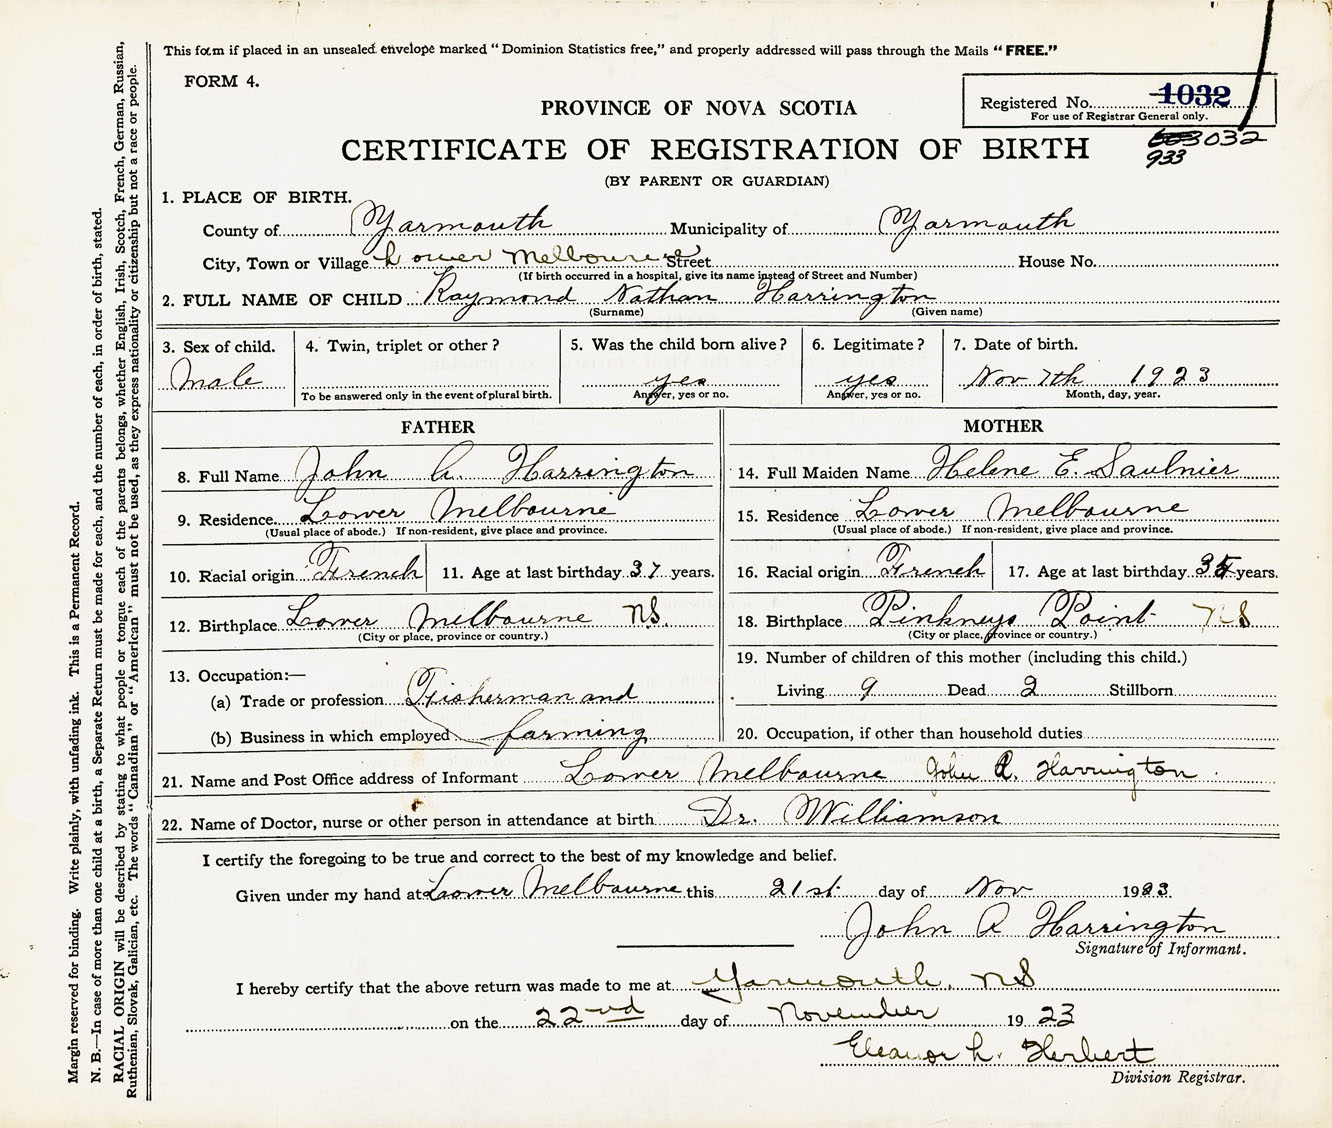 This form if placed in an unsealed envelope marked "Dominion Statistics free," and properly addressed will pass through the Mails "FREE."
FORM 4.
Registered No. 1032
For use of Registrar General only.
PROVINCE OF NOVA SCOTIA
CERTIFICATE OF REGISTRATION OF BIRTH
3032
933
(BY PARENT OR GUARDIAN)
1. PLACE OF BIRTH.
County of Yarmouth Municipality of Yarmouth
City, Town or Village Lower Melbourne Street House No.
(If birth occurred in a hospital, give its name instead of Street and Number)
2. FULL NAME OF CHILD Raymond Nathan Harrington
(Surname) (Given name)
3. Sex of child. 4. Twin, triplet or other? 5. Was the child born alive? 6. Legitimate? 7. Date of birth.
Male yes yes Nov 7th 1923
To be answered only in the event of plural birth. Answer, yes or no. Answer, yes or no. Month, day, year.
FATHER MOTHER
8. Full Name John A. Harrington 14. Full Maiden Name Helene E. Saulnier
9. Residence Lower Melbourne 15. Residence Lower Melbourne
(Usual place of abode.) If non-resident, give place and province. (Usual place of abode.) If non-resident, give place and province.
10. Racial origin French 11. Age at last birthday 37 years. 16. Racial origin French 17. Age at last birthday 3 years.
12. Birthplace Lower Melbourne NS. 18. Birthplace Pinkneys Point NS
(City or place, province or country.) (City or place, province or country.)
13. Occupation:— 19. Number of children of this mother (including this child.)
(a) Trade or profession Fisherman and Living 9 Dead 2 Stillborn
(b) Business in which employed farming 20. Occupation, if other than household duties
21. Name and Post Office address of Informant Lower Melbourne John A. Harrington
22. Name of Doctor, nurse or other person in attendance at birth Dr. Williamson
I certify the foregoing to be true and correct to the best of my knowledge and belief.
Given under my hand at Lower Melbourne this 21st day of Nov 1923.
John A Harrington
Signature of Informant.
I hereby certify that the above return was made to me at Yarmouth, NS
on the 22nd day of November 1923
Eleanor L. Herbert
Division Registrar.
Margin reserved for binding. Write plainly, with unfading ink. This is a Permanent Record.
N. B.—In case of more than one child at a birth, a Separate Return must be made for each, and the number of each, in order of birth, stated.
RACIAL ORIGIN will be described by stating to what people or tongue each of the parents belongs, whether English, Irish, Scotch, French, German, Russian,
Ruthenian, Slovak, Galician, etc. The words "Canadian" or "American" must not be used, as they express nationality or citizenship but not a race or people.